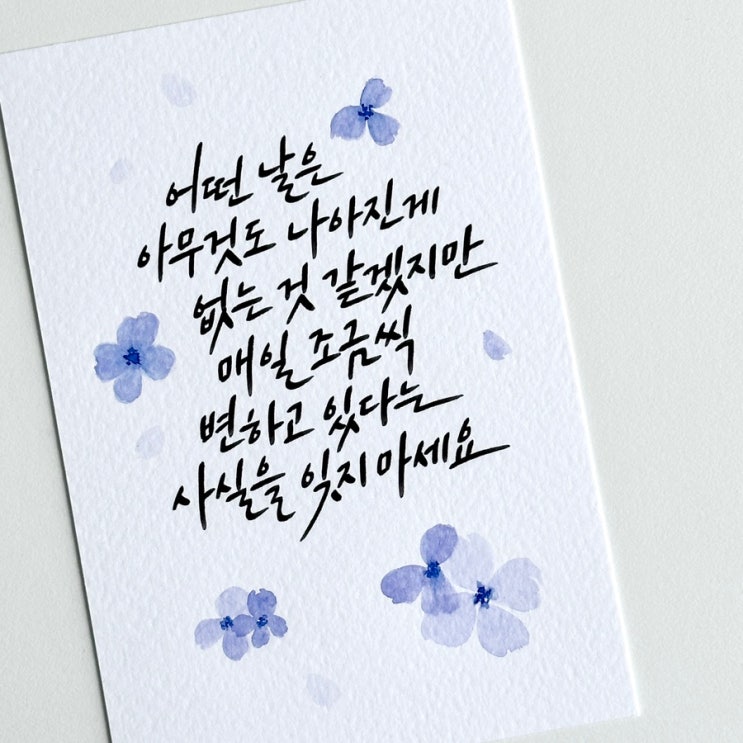 어떤 날은
아무것도 나아진게
없는 것 같겠지만
매일 조금씩
변하고 있다는
사실을 잊지 마세요